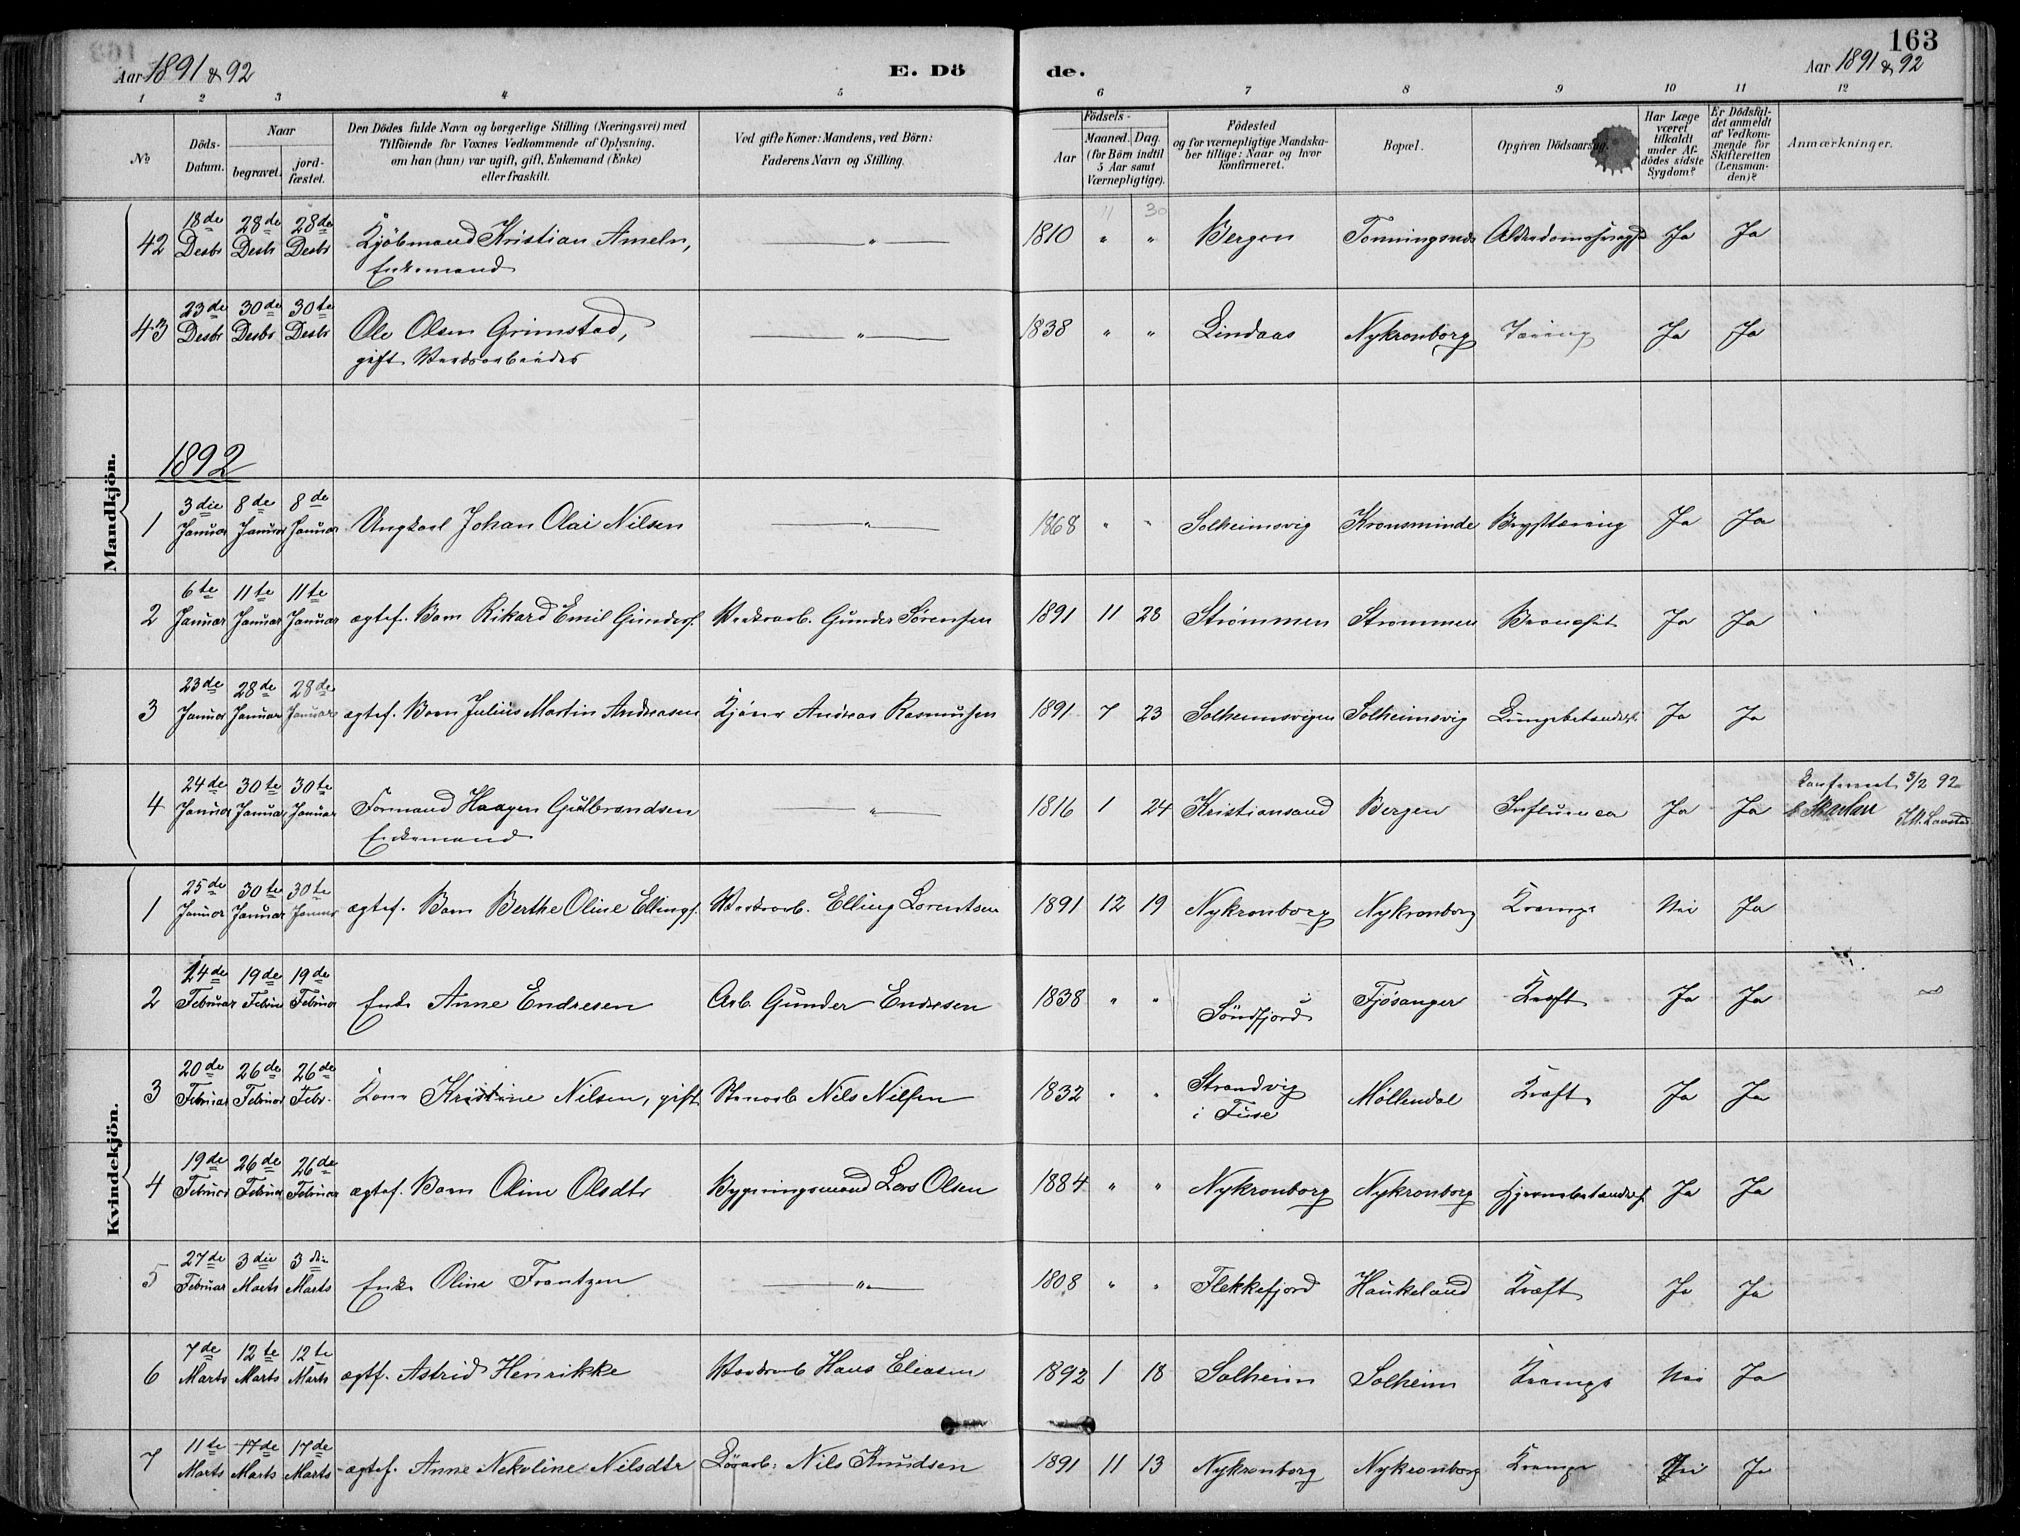 163
Aar 1891 & 92
E. Dö
de.
Aar 1891 & 92
1 2 3 4 5 6 7 8 9 10 11 12
No
Döds-Datum.
Naar
begravet.
jord-fæstet.
Den Dödes fulde Navn og borgerlige Stilling (Næringsvei) med
Tilföiende for Voxnes Vedkommende af Oplysning.
om han (hun) var ugift, gift, Enkemand (Enke)
eller fraskilt.
Ved gifte Koner: Mandens, ved Börn:
Faderens Navn og Stilling.
Födsels-
Aar
Maaned. Dag.
(for Börn indtil
5 Aar samt
Værnepligtige).
Födested
og for værnepligtige Mandska-
ber tillige: Naar og hvor
konfirmeret.
Bopæl.
Opgiven Dödsaarsag.
Har Læge
været
tilkaldt
under Af-
dödes sidste
Sygdom?
Er Dödsfal-
det anmeldt
af Vedkom-
mende for
Skifteretten
(Lensman-
den)?
Anmærkninger.
Mandkjön.
11 30
42 18de Desbr 28de Desbr 28de Desbr Kjöbmand Kristian Ameln, " 1810 " " Bergen Tonningsnes Ja Ja
Enkemand
43 23de Desbr 30de Desbr 30te Desbr Ole Olsen Grimstad, " 1838 " " Lindaas Nykronborg Tæring Ja Ja
gift Værksarbeider
1892
1 3die Januar 8de Januar 8de Januar Ungkarl Johan Olai Nilsen " 1868 " " Solheimsvig Kronsminde Brysttæring Ja Ja
2 6te Januar 11te Januar 11te Januar ægtef. Barn Rikard Emil Gunders. Værksarb. Gunder Sørensen 1891 11 28 Strømmen Strømmen Ja Ja
3 23de Januar 28de Januar 28de Januar ægtef. Barn Julius Martin Andreasen Andreas Rasmussen 1891 7 23 Solheimsvigen Solheimsvig Ja Ja
4 24de Januar 30te Januar 30te Januar Formand Haagen Gulbrandsen " 1816 1 24 Kristiansand Bergen Influenca Ja Ja 3/2 92
Enkemand
Kvindekjön.
1 25de Januar 30te Januar 30te Januar ægtef. Barn Berthe Oline Ellings. Værksarb. Elling Lorentsen 1891 12 19 Nykronborg Nykronborg Krampe Nei Ja
2 14de Februar 19de Februar 19de Februar Enke Anne Endresen Arb. Gunder Endresen 1838 " " Söndfjord Fjösanger Kræft Ja Ja
3 20de Februar 26de Februar 26de Febr. Kone Kristine Nilsen, gift Nils Nilsen 1832 " " Strandvig Möllendal Kræft Ja Ja
i Fuse
4 19de Februar 26de Februar 26de Februar ægtef. Barn Oline Olsdtr Bygningsmand Lars Olsen 1884 " " Nykronborg Nykronborg Hjernebetændels. Ja Ja
5 27de Februar 3die Marts 3die Marts Enke Oline Frantzen " 1808 " " Flekkefjord Haukeland Kræft Ja Ja
6 7de Marts 12te Marts 12te Marts ægtf. Astrid Henrikke Værksarb Hans Eliasen 1892 1 18 Solheim Solheim Krampe Nei Ja
7 11te Marts 17de Marts 17de Marts ægtef. Anne Nekoline Nilsdtr Nils Knudsen 1891 11 13 Nykronborg Nykronborg Krampe Nei Ja